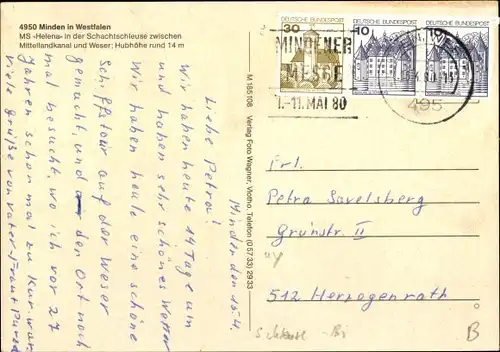 4950 Minden in Westfalen
MS »Helena« in der Schachtschleuse zwischen
Mittellandkanal und Weser; Hubhöhe rund 14 m
DEUTSCHE BUNDESPOST
30
DEUTSCHE BUNDESPOST
10
DEUTSCHE BUNDESPOST
10
MINDENER
MESSE
1.-11. MAI 80
495
M 185108 Verlag Foto Wagner, Vlotho, Telefon (0 57 33) 29 33
Minden den 15.4.
Liebe Petra!
Wir haben heute 14 Tage um
und haben sehr schönes Wetter
Wir haben heute eine schöne
Schiffstour auf der Weser
gemacht, und den Ort noch
mal besucht, wo ich vor 27
Jahren schon mal zu Kur war
viele grüße von Vater
Frl.
Petra Savelsberg
Grünstr. II
512 Herzogenrath
B